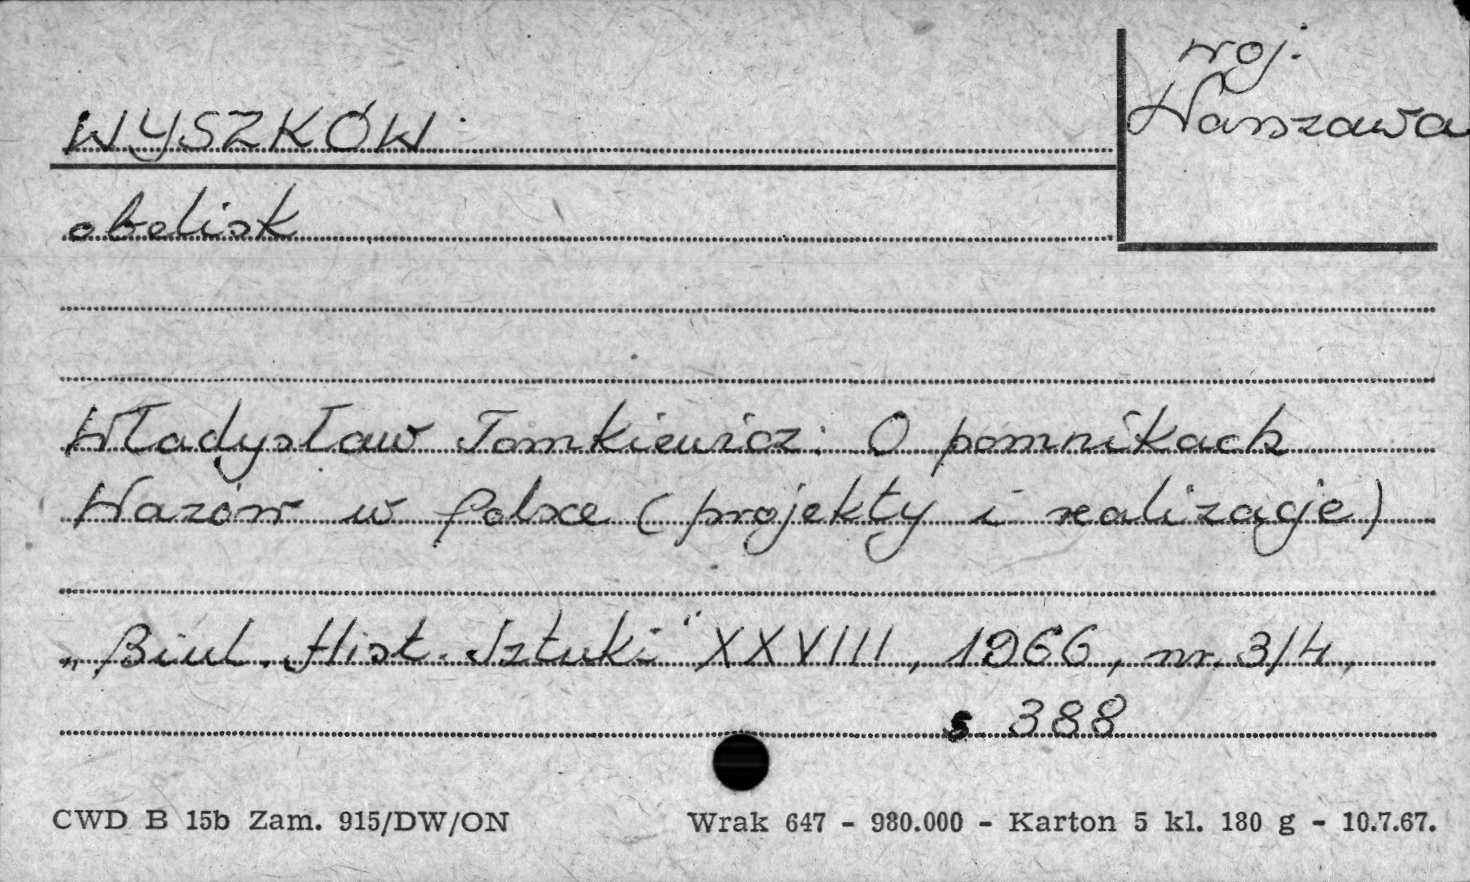 woj.
Warszawa
WYSZKÓW
obelisk
Władysław Tomkiewicz: O pomnikach
Wazów w Polsce (projekty i realizacje)
„Biul. Hist. Sztuki" XXVIII, 1966, nr. 3/4,
s 388
CWD B 15b Zam. 915/DW/ON
Wrak 647 - 980.000 - Karton 5 kl. 180 g - 10.7.67.